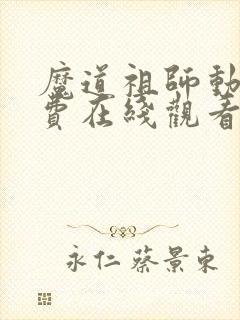 魔道祖師動
費在綫觀看
永仁蔡景東